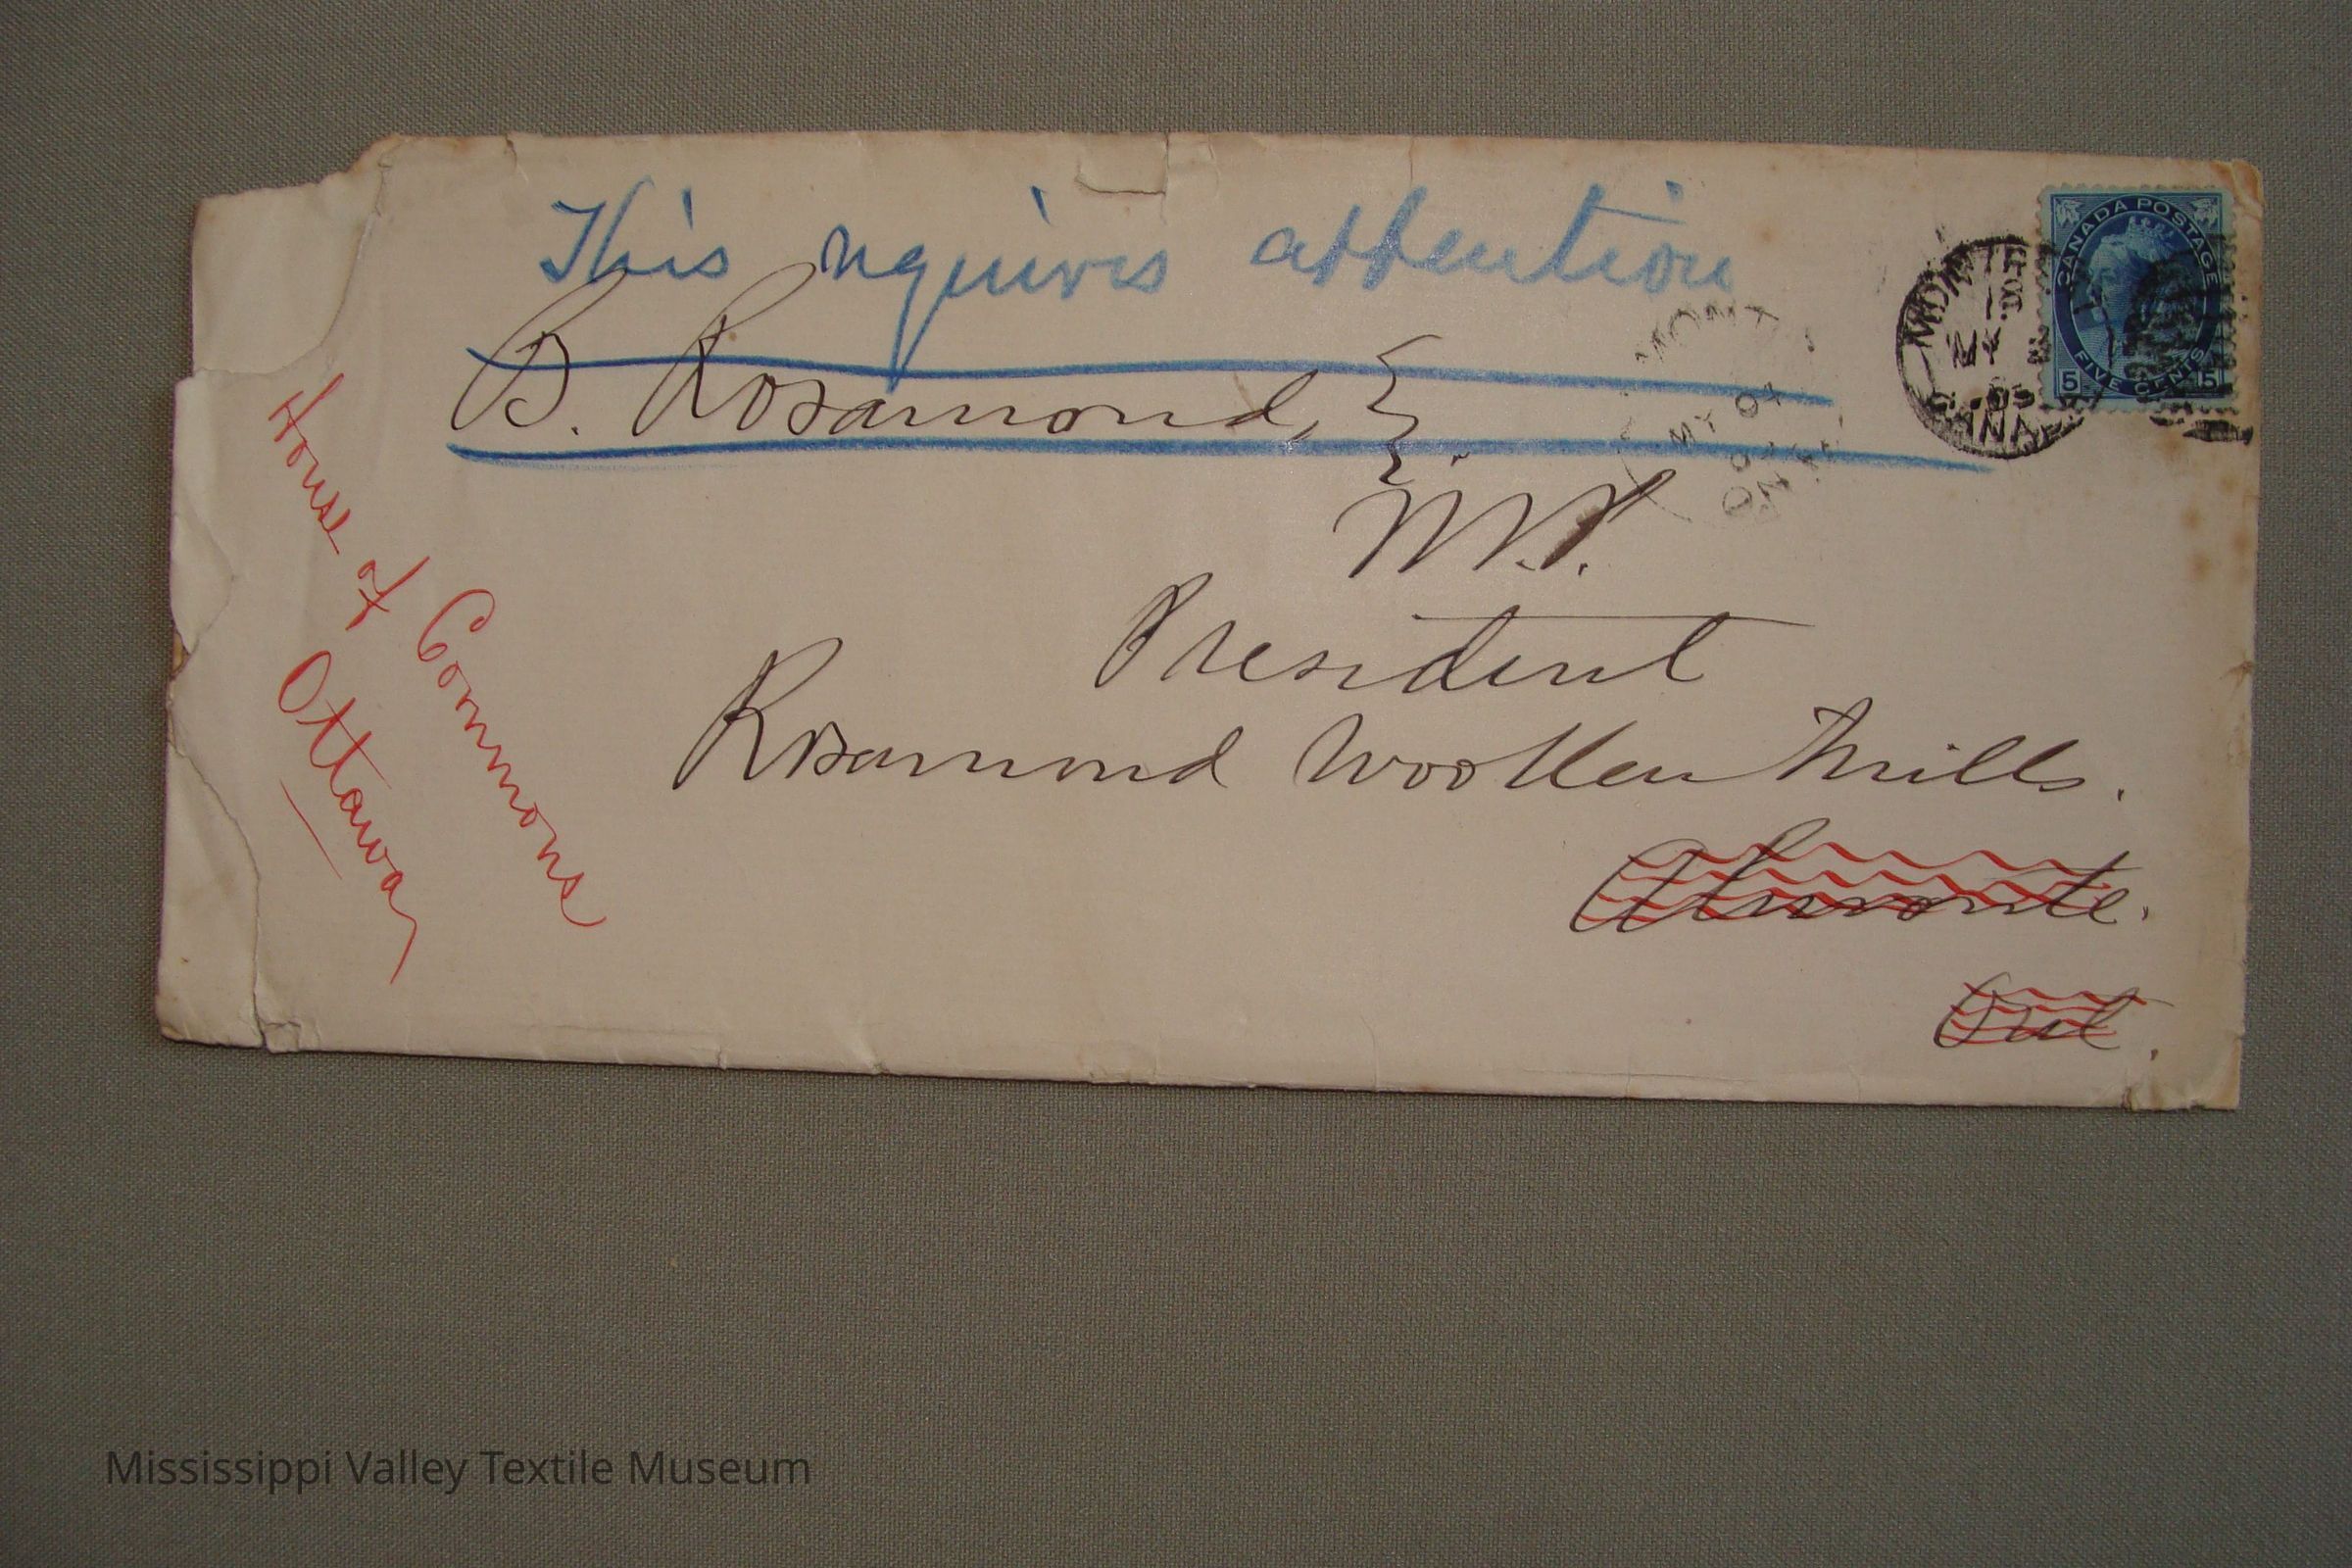 This requires attention
B. Rosamond,
M.P.
President
Rosamond Woollen Mills.
Almonte.
Ont.
House of Commons
Ottawa
CANADA POSTAGE
FIVE CENTS
5 5
MONT
MY 01
Mississippi Valley Textile Museum